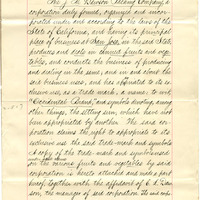 The J. M. Dawson Packing Company, a
corporation duly formed, organized and incor-
porated under and according to the laws of the
State of California, and having its principal
place of business at San Jose, in the said State
produces and deals in canned fruits and vege-
tables, and conducts the business of producing
and dealing in the same; and in and about the
said business uses, and has appropriated to its ex-
clusive use, as a trade-mark, a name: to wit
"Occidental Brand", and symbols denoting, among
other things, the setting sun, which have not
been appropriated by another. The said cor-
poration claims the right to appropriate to its
exclusive use the said trade-mark and symbols
a copy of the trade-mark and symbols used
on the various fruits and vegetables by said
corporation is hereto attached and made a part
hereof, together with the affidavit of E. L. Daw-
son, the manager of said corporation.